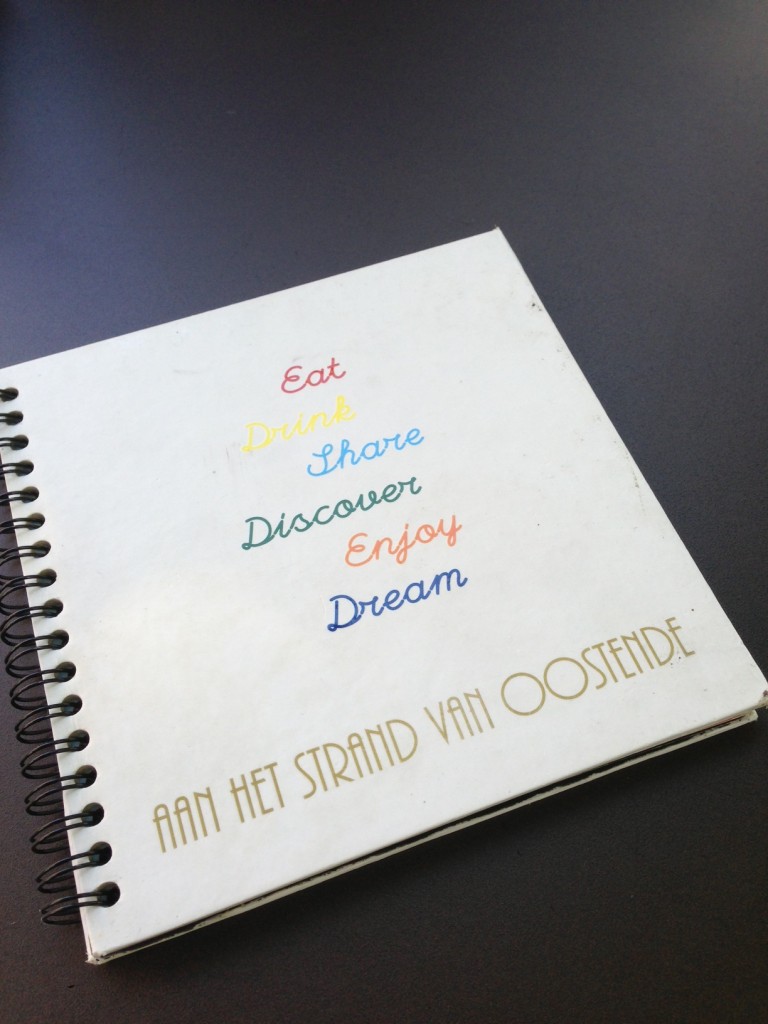 Eat
Drink
Share
Discover
Enjoy
Dream
AAN HET STRAND VAN OOSTENDE